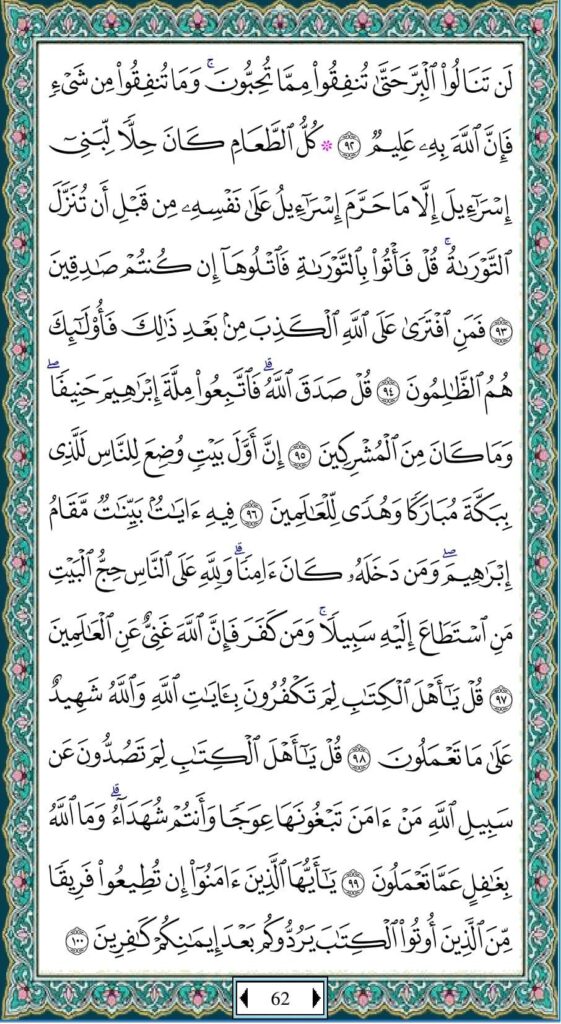 لَن تَنَالُوا۟ ٱلْبِرَّ حَتَّىٰ تُنفِقُوا۟ مِمَّا تُحِبُّونَ ۚ وَمَا تُنفِقُوا۟ مِن شَىْءٍ
فَإِنَّ ٱللَّهَ بِهِۦ عَلِيمٌ ٩٢ * كُلُّ ٱلطَّعَامِ كَانَ حِلًّا لِّبَنِىٓ
إِسْرَٰٓءِيلَ إِلَّا مَا حَرَّمَ إِسْرَٰٓءِيلُ عَلَىٰ نَفْسِهِۦ مِن قَبْلِ أَن تُنَزَّلَ
ٱلتَّوْرَىٰةُ ۗ قُلْ فَأْتُوا۟ بِٱلتَّوْرَىٰةِ فَٱتْلُوهَآ إِن كُنتُمْ صَٰدِقِينَ
٩٣ فَمَنِ ٱفْتَرَىٰ عَلَى ٱللَّهِ ٱلْكَذِبَ مِنۢ بَعْدِ ذَٰلِكَ فَأُو۟لَٰٓئِكَ
هُمُ ٱلظَّٰلِمُونَ ٩٤ قُلْ صَدَقَ ٱللَّهُ ۗ فَٱتَّبِعُوا۟ مِلَّةَ إِبْرَٰهِيمَ حَنِيفًا ۖ
وَمَا كَانَ مِنَ ٱلْمُشْرِكِينَ ٩٥ إِنَّ أَوَّلَ بَيْتٍ وُضِعَ لِلنَّاسِ لَلَّذِى
بِبَكَّةَ مُبَارَكًا وَهُدًى لِّلْعَٰلَمِينَ ٩٦ فِيهِ ءَايَٰتٌۢ بَيِّنَٰتٌ مَّقَامُ
إِبْرَٰهِيمَ ۖ وَمَن دَخَلَهُۥ كَانَ ءَامِنًا ۗ وَلِلَّهِ عَلَى ٱلنَّاسِ حِجُّ ٱلْبَيْتِ
مَنِ ٱسْتَطَاعَ إِلَيْهِ سَبِيلًا ۚ وَمَن كَفَرَ فَإِنَّ ٱللَّهَ غَنِىٌّ عَنِ ٱلْعَٰلَمِينَ
٩٧ قُلْ يَٰٓأَهْلَ ٱلْكِتَٰبِ لِمَ تَكْفُرُونَ بِـَٔايَٰتِ ٱللَّهِ وَٱللَّهُ شَهِيدٌ
عَلَىٰ مَا تَعْمَلُونَ ٩٨ قُلْ يَٰٓأَهْلَ ٱلْكِتَٰبِ لِمَ تَصُدُّونَ عَن
سَبِيلِ ٱللَّهِ مَنْ ءَامَنَ تَبْغُونَهَا عِوَجًا وَأَنتُمْ شُهَدَآءُ ۗ وَمَا ٱللَّهُ
بِغَٰفِلٍ عَمَّا تَعْمَلُونَ ٩٩ يَٰٓأَيُّهَا ٱلَّذِينَ ءَامَنُوٓا۟ إِن تُطِيعُوا۟ فَرِيقًا
مِّنَ ٱلَّذِينَ أُوتُوا۟ ٱلْكِتَٰبَ يَرُدُّوكُم بَعْدَ إِيمَٰنِكُمْ كَٰفِرِينَ ١٠٠
62